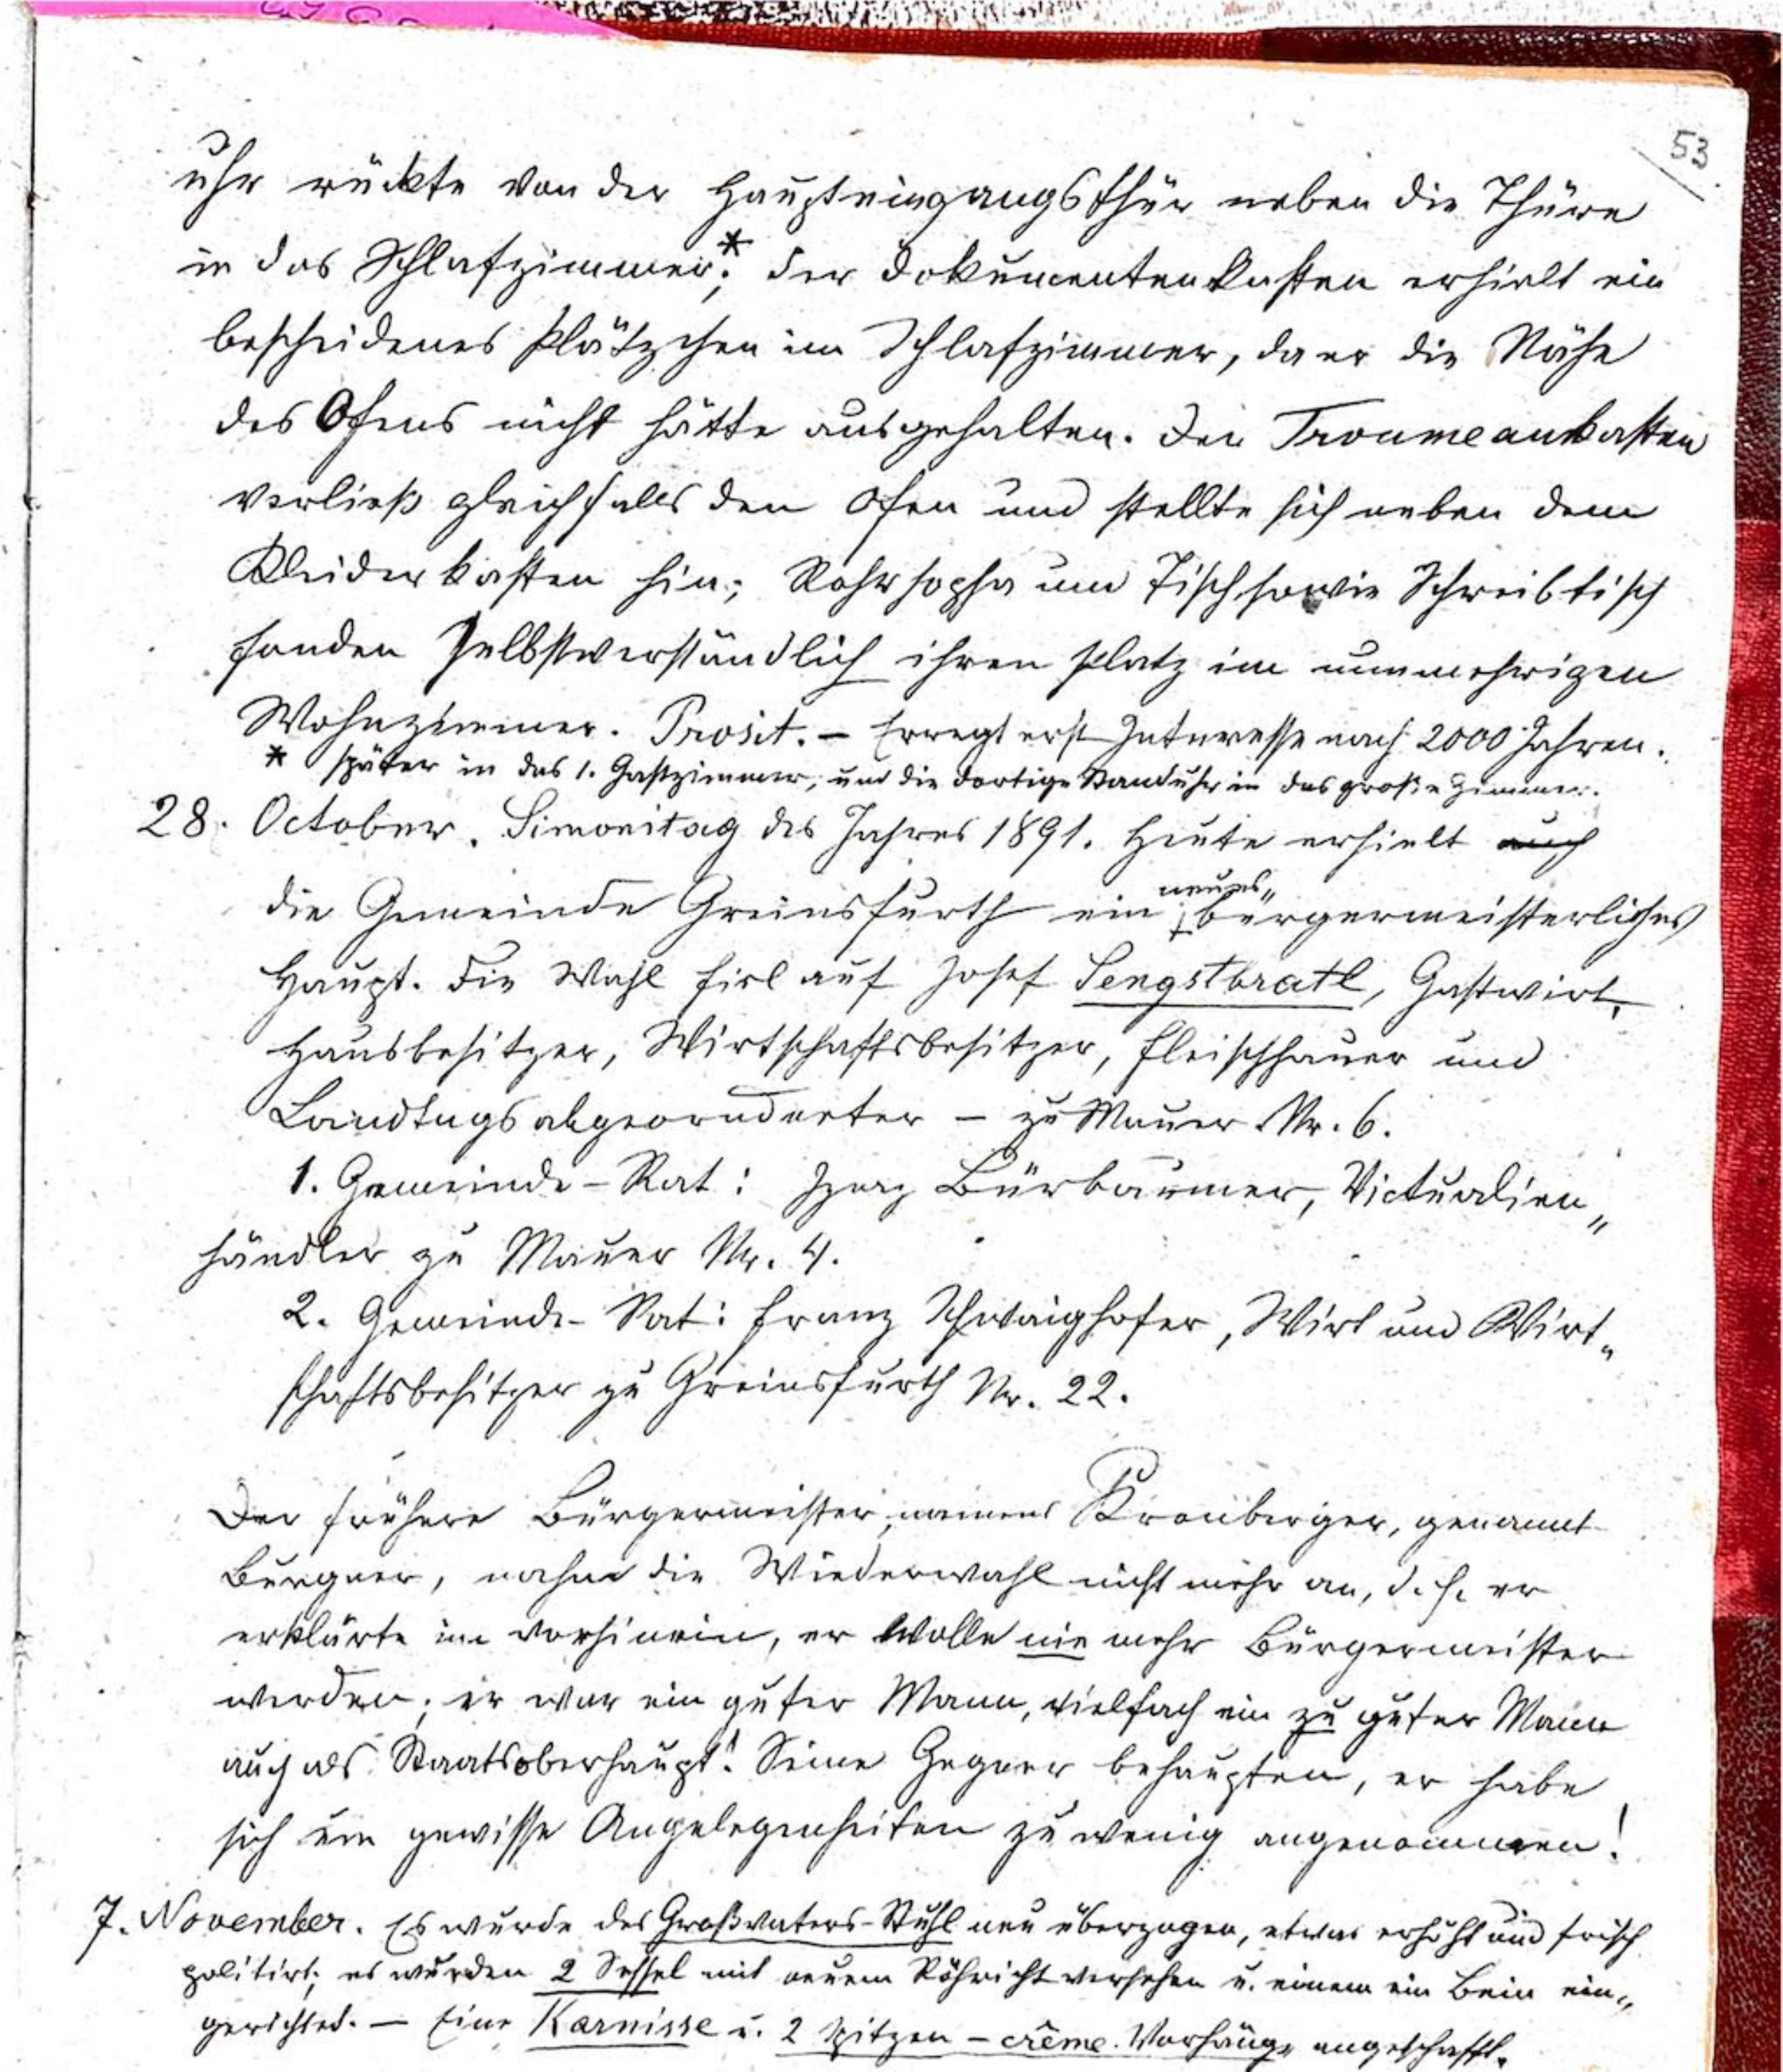 53.
uhr rückte von der Haupteingangsthür neben die Thüre
in das Schlafzimmer*; der Dokumentenkasten erhielt ein
bescheidenes Plätzchen im Schlafzimmer, da er die Nähe
des Ofens nicht hätte ausgehalten. Der Troumeaukasten
verließ gleichfalls den Ofen und stellte sich neben dem
Kleiderkasten hin; Rohrsopha und Tisch sowie Schreibtisch
fanden selbstverständlich ihren Platz im nunmehrigen
Wohnzimmer. Prosit. – Erregt erst Interesse nach 2000 Jahren.
* später in das 1. Gastzimmer, und die dortige Standuhr in das große Zimmer.
28. October. Simonitag des Jahres 1891. Heute erhielt auch
die Gemeinde Greinsfurth ein neues„ bürgermeisterliches
Haupt. Die Wahl fiel auf Josef Sengstbratl, Gastwirt,
Hausbesitzer, Wirtschaftsbesitzer, Fleischhauer und
Landtagsabgeordneter – zu Mauer Nr. 6.
1. Gemeinde-Rat: Ignaz Bürbaumer, Victualien„
händler zu Mauer Nr. 4.
2. Gemeinde-Rat: Franz Schwaighofer, Wirt und Wirt„
schaftsbesitzer zu Greinsfurth Nr. 22.
Der frühere Bürgermeister, namens Kronberger, genannt
Burgner, nahm die Wiederwahl nicht mehr an, d. h. er
erklärte im vorhinein, er wolle nie mehr Bürgermeister
werden; er war ein guter Mann, vielfach ein zu guter Mann
auch als Staatsoberhaupt! Seine Gegner behaupten, er habe
sich um gewisse Angelegenheiten zu wenig angenommen!
7. November. Es wurde des Großvaters-Stuhl neu überzogen, etwas erhöht und frisch
politirt; es wurden 2 Sessel mit neuem Röhricht versehen u. einem ein Bein ein„
gerichtet. – Eine Karnisse u. 2 Spitzen – crême. Vorhänge angeschafft.